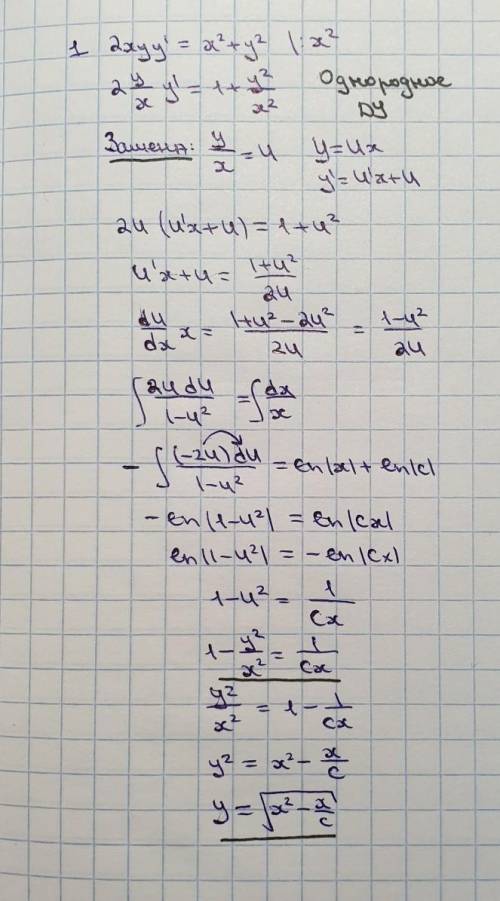 1 2xyy' = x² + y² |: x²
2 y/x y' = 1 + y²/x² Однородное ДУ
Замена: y/x = u y = ux
y' = u'x + u
2u (u'x + u) = 1 + u²
u'x + u = (1 + u²)/(2u)
du/dx x = (1 + u² - 2u²)/(2u) = (1 - u²)/(2u)
∫ (2u du)/(1 - u²) = ∫ dx/x
- ∫ ((-2u) du)/(1 - u²) = ln|x| + ln|c|
-ln|1 - u²| = ln|cx|
ln|1 - u²| = -ln|cx|
1 - u² = 1/(cx)
1 - y²/x² = 1/(cx)
y²/x² = 1 - 1/(cx)
y² = x² - x/c
y = √(x² - x/c)